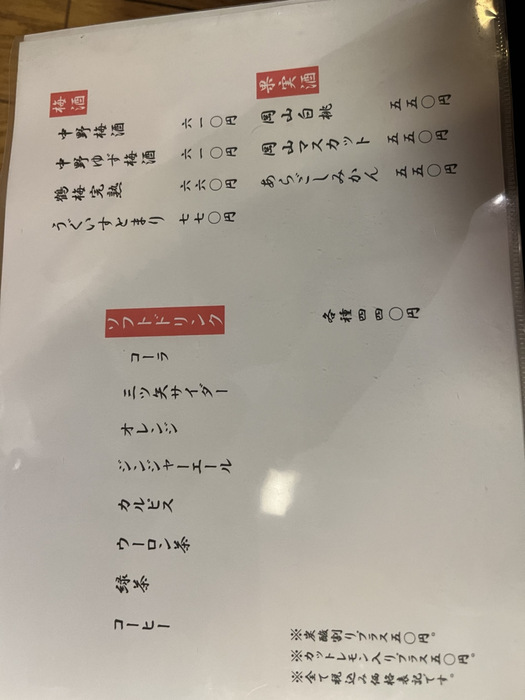 梅酒
中野梅酒 六一〇円
中野ゆず梅酒 六一〇円
鶴梅完熟 六六〇円
うぐいすとまり 七七〇円
果実酒
岡山白桃 五五〇円
岡山マスカット 五五〇円
あらごしみかん 五五〇円
ソフトドリンク
各種四四〇円
コーラ
三ツ矢サイダー
オレンジ
ジンジャーエール
カルピス
ウーロン茶
緑茶
コーヒー
※炭酸割りプラス五〇円。
※カットレモン入りプラス五〇円。
※全て税込み価格表記です。